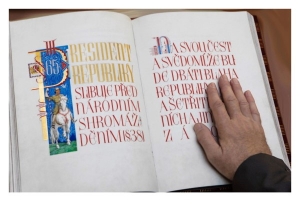 § 65
PRESIDENT
REPUBLIKY
SLIBUJE PŘED
NÁRODNÍM
SHROMÁŽ
DĚNÍM (§ 38)
NA SVOU ČEST
A SVĚDOMÍ ŽE BU
DE DBÁTI BLAHA
REPUBLIKY
A ŠETŘIT
NÍCH A JI
ZÁ